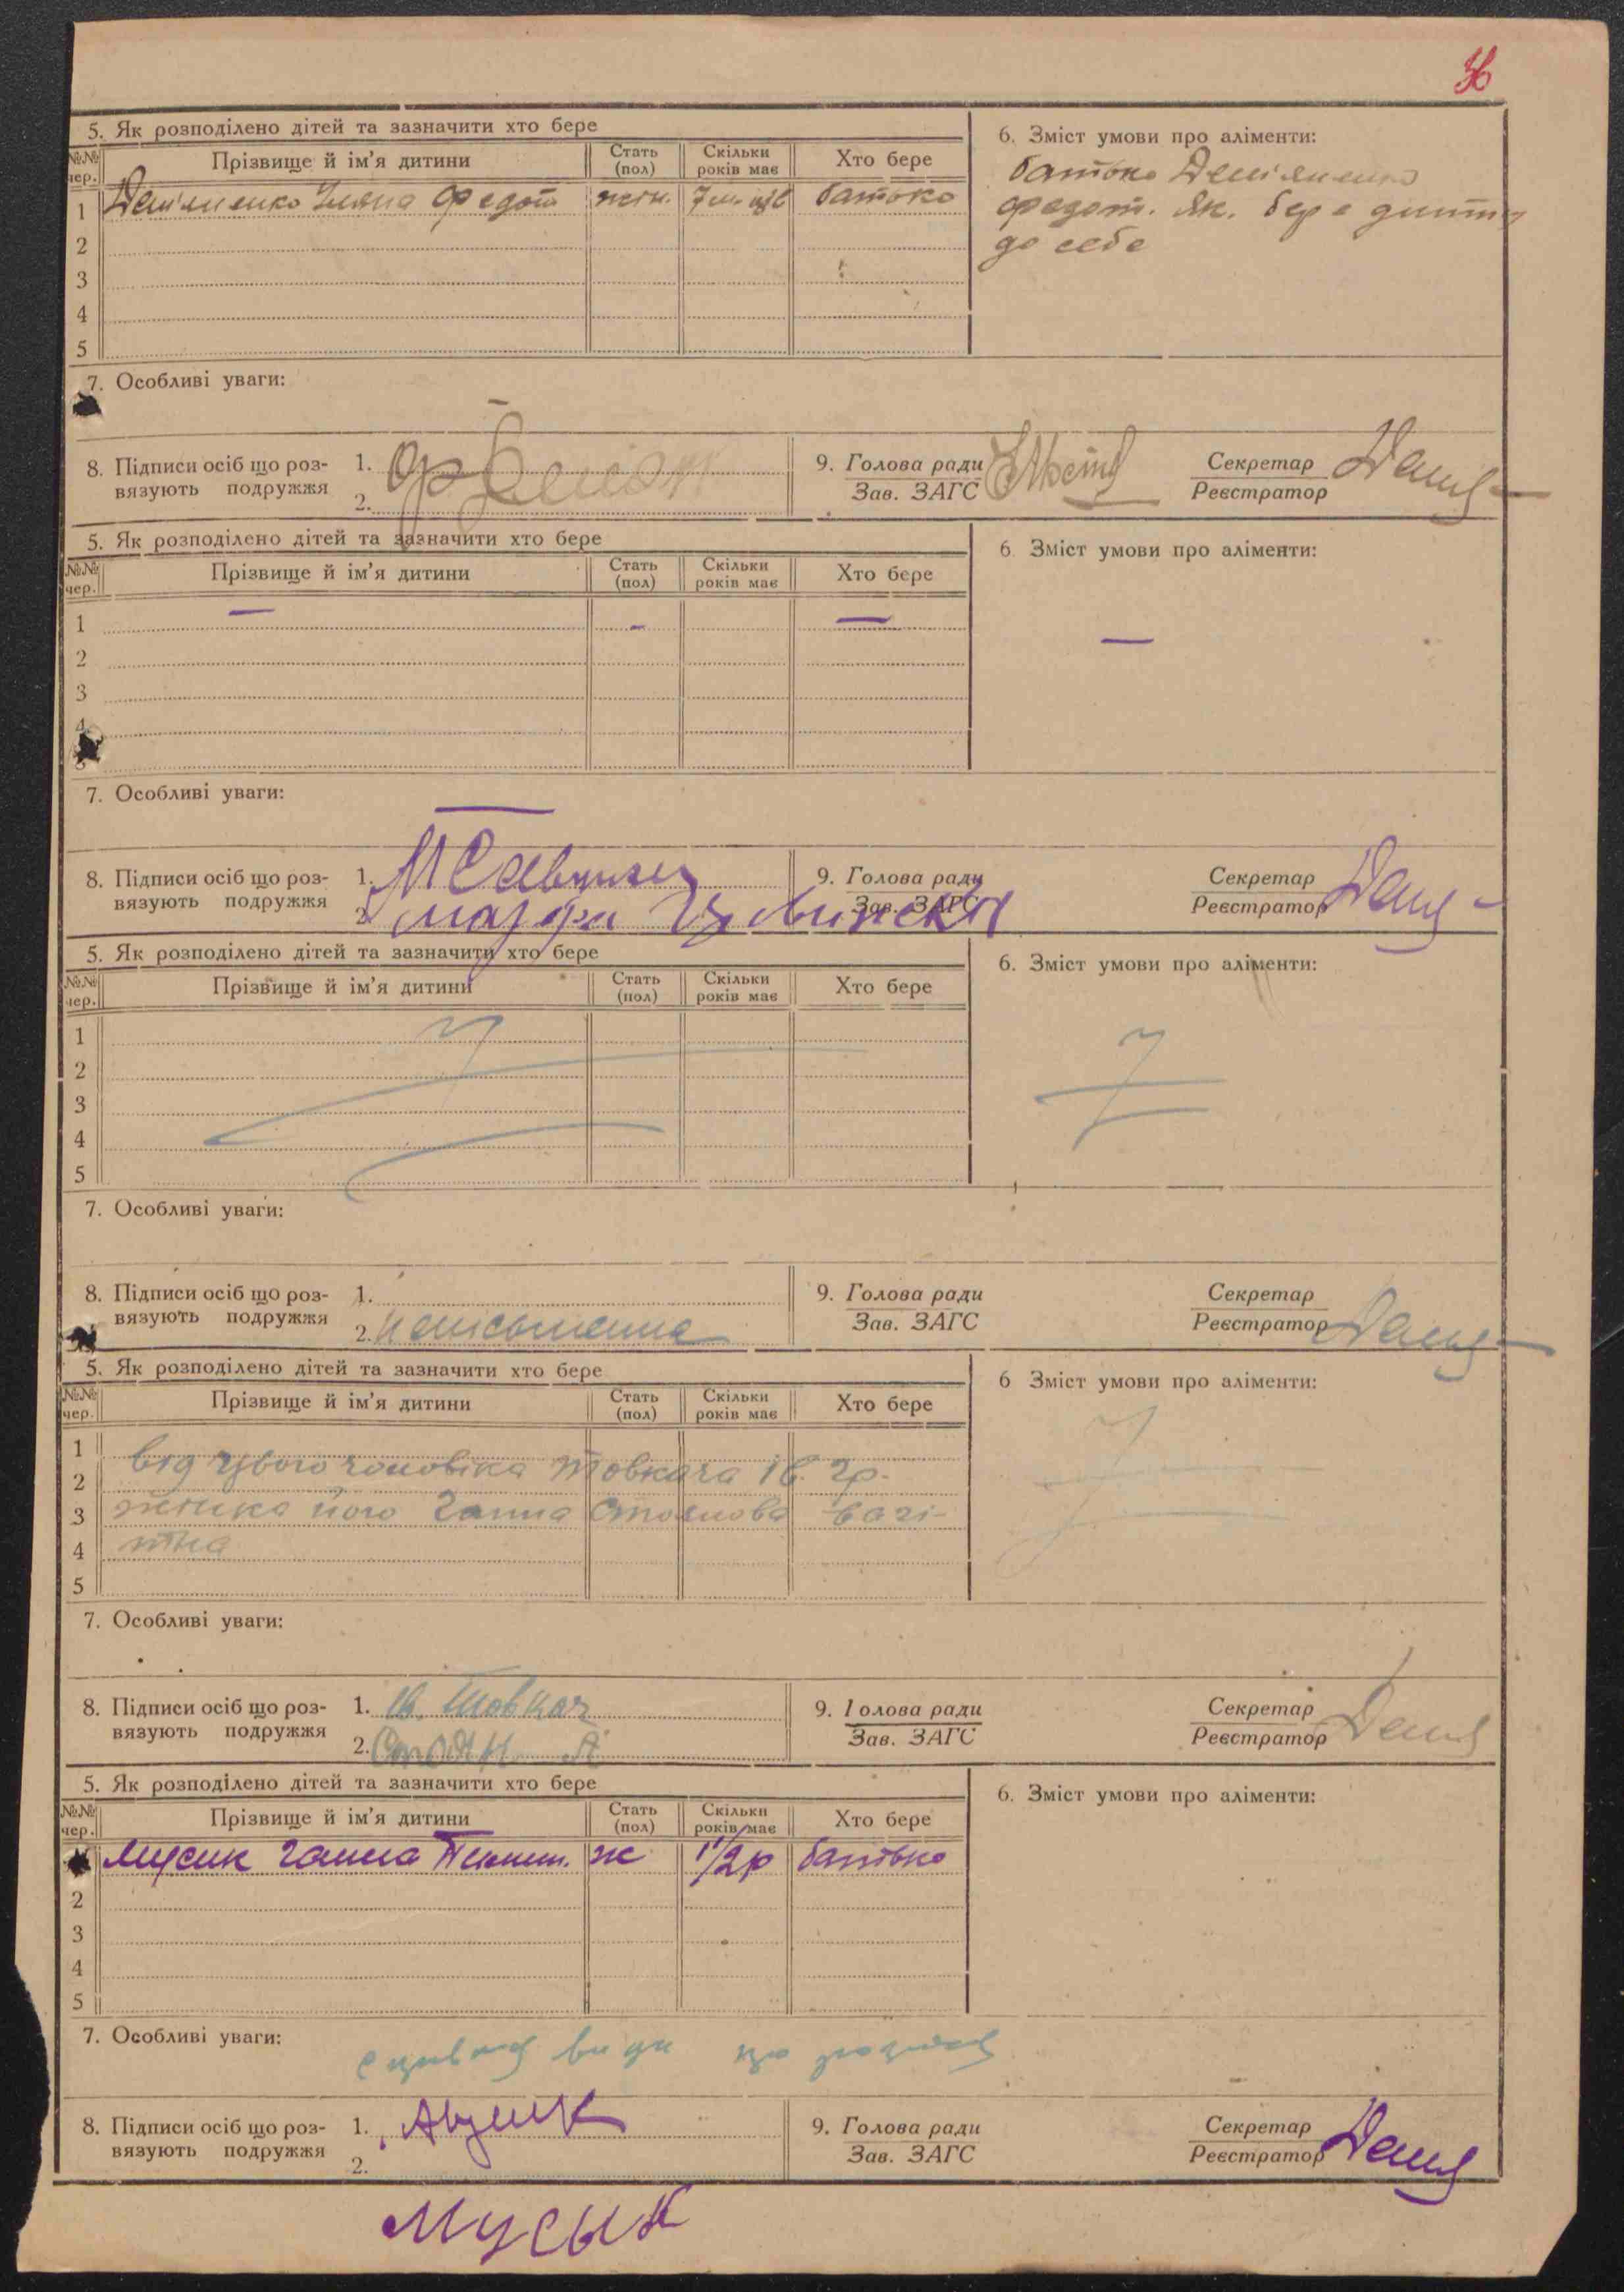 36
5. Як розподілено дітей та зазначити хто бере
№№ чер. Прізвище й ім'я дитини Стать (пол) Скільки років має Хто бере
1 Дем'яненко Уляна Федот жін. 7 батько
2
3
4
5
6. Зміст умови про аліменти:
батько Дем'яненко
Федот. Як. бере дитину
до себе
7. Особливі уваги:
8. Підписи осіб що роз-
вязують подружжя
1.
2.
9. Голова ради
Зав. ЗАГС
Секретар
Реєстратор
5. Як розподілено дітей та зазначити хто бере
№№ чер. Прізвище й ім'я дитини Стать (пол) Скільки років має Хто бере
1 — — —
2
3
4
6 Зміст умови про аліменти:
—
7. Особливі уваги:
—
8. Підписи осіб що роз-
вязують подружжя
1.
2.
9. Голова ради
Зав. ЗАГС
Секретар
Реєстратор
5. Як розподілено дітей та зазначити хто бере
№№ чер. Прізвище й ім'я дитини Стать (пол) Скільки років має Хто бере
1
2
3
4
5
6. Зміст умови про аліменти:
7. Особливі уваги:
8. Підписи осіб що роз-
вязують подружжя
1.
2. Неписьменна
9. Голова ради
Зав. ЗАГС
Секретар
Реєстратор
5. Як розподілено дітей та зазначити хто бере
№№ чер. Прізвище й ім'я дитини Стать (пол) Скільки років має Хто бере
1
2 від чоловіка Товкача Ів. гр.
3 жінка його Ганна Стоянова вагі-
4 тна
5
6 Зміст умови про аліменти:
7. Особливі уваги:
8. Підписи осіб що роз-
вязують подружжя
1. Ів. Товкач
2. Стоян
9. Голова ради
Зав. ЗАГС
Секретар
Реєстратор
5. Як розподілено дітей та зазначити хто бере
№№ чер. Прізвище й ім'я дитини Стать (пол) Скільки років має Хто бере
Мусик Ганна ж 1 1/2 р батько
2
3
4
5
6. Зміст умови про аліменти:
7. Особливі уваги:
8. Підписи осіб що роз-
вязують подружжя
1.
2.
9. Голова ради
Зав. ЗАГС
Секретар
Реєстратор
Мусык